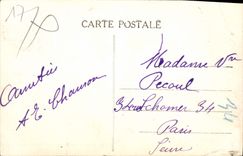 17
CARTE POSTALE
Amitié
A. E. Chanson
Madame Vve
Pecoul
34
Paris
Seine